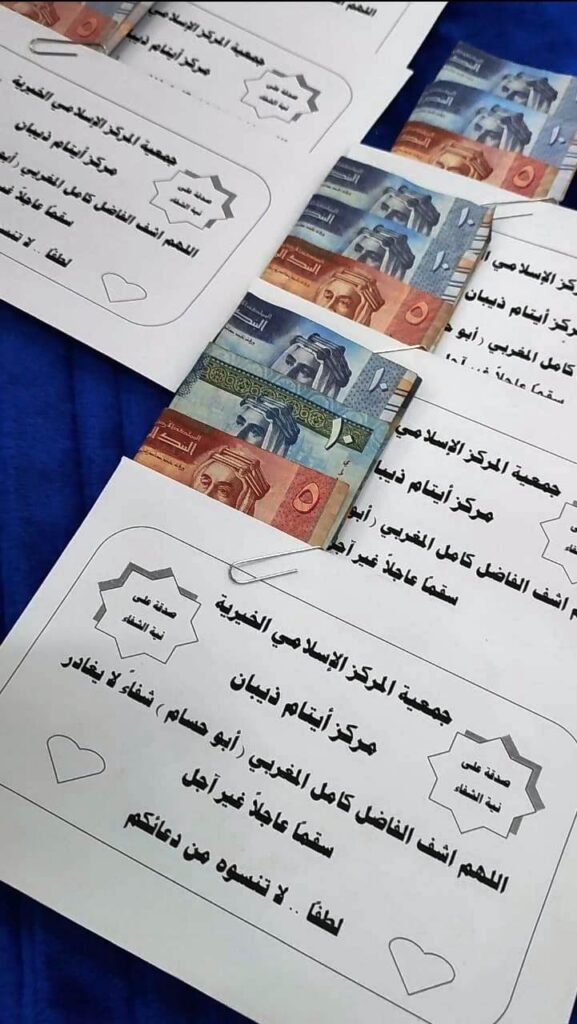 اللهم اش
جمعية المركز الإسلامي الخيرية
مركز أيتام ذيبان
صدقة على
نية الشفاء
جمعية المركز الإسلامي الخيرية
مركز أيتام ذيبان
صدقة على
نية الشفاء
اللهم اشف الفاضل كامل المغربي (أبو
سقماً عاجلاً غير
لطفاً .. لا تنسو
١٠
١٠
٥
مركز الإسلامي ا
مركز أيتام ذيبان
كامل المغربي (أبو ح
سقماً عاجلاً غير آجل
١٠
١٠
٥
جمعية المركز الإسلامي
مركز أيتام ذيبان
اشف الفاضل كامل المغربي (أبو
سقماً عاجلاً غير آجل
صدقة على
نية الشفاء
جمعية المركز الإسلامي الخيرية
مركز أيتام ذيبان
صدقة على
نية الشفاء
اللهم اشف الفاضل كامل المغربي (أبو حسام) شفاءً لا يغادر
سقماً عاجلاً غير آجل
لطفاً .. لا تنسوه من دعائكم